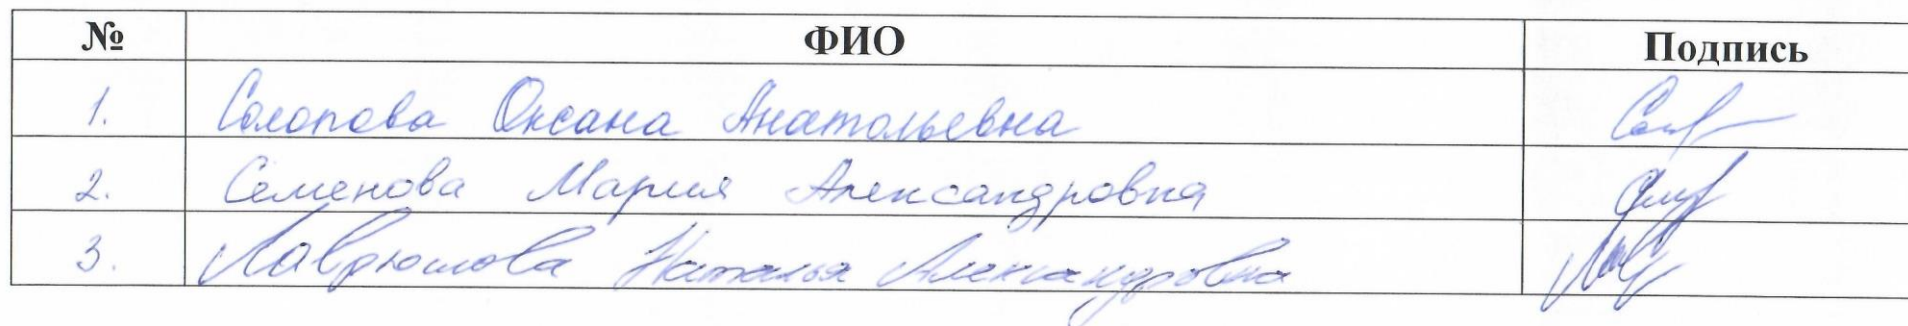 № ФИО Подпись
1. Солопова Оксана Анатольевна
2. Семенова Мария Александровна
3. Лаврюшова Наталья Александровна